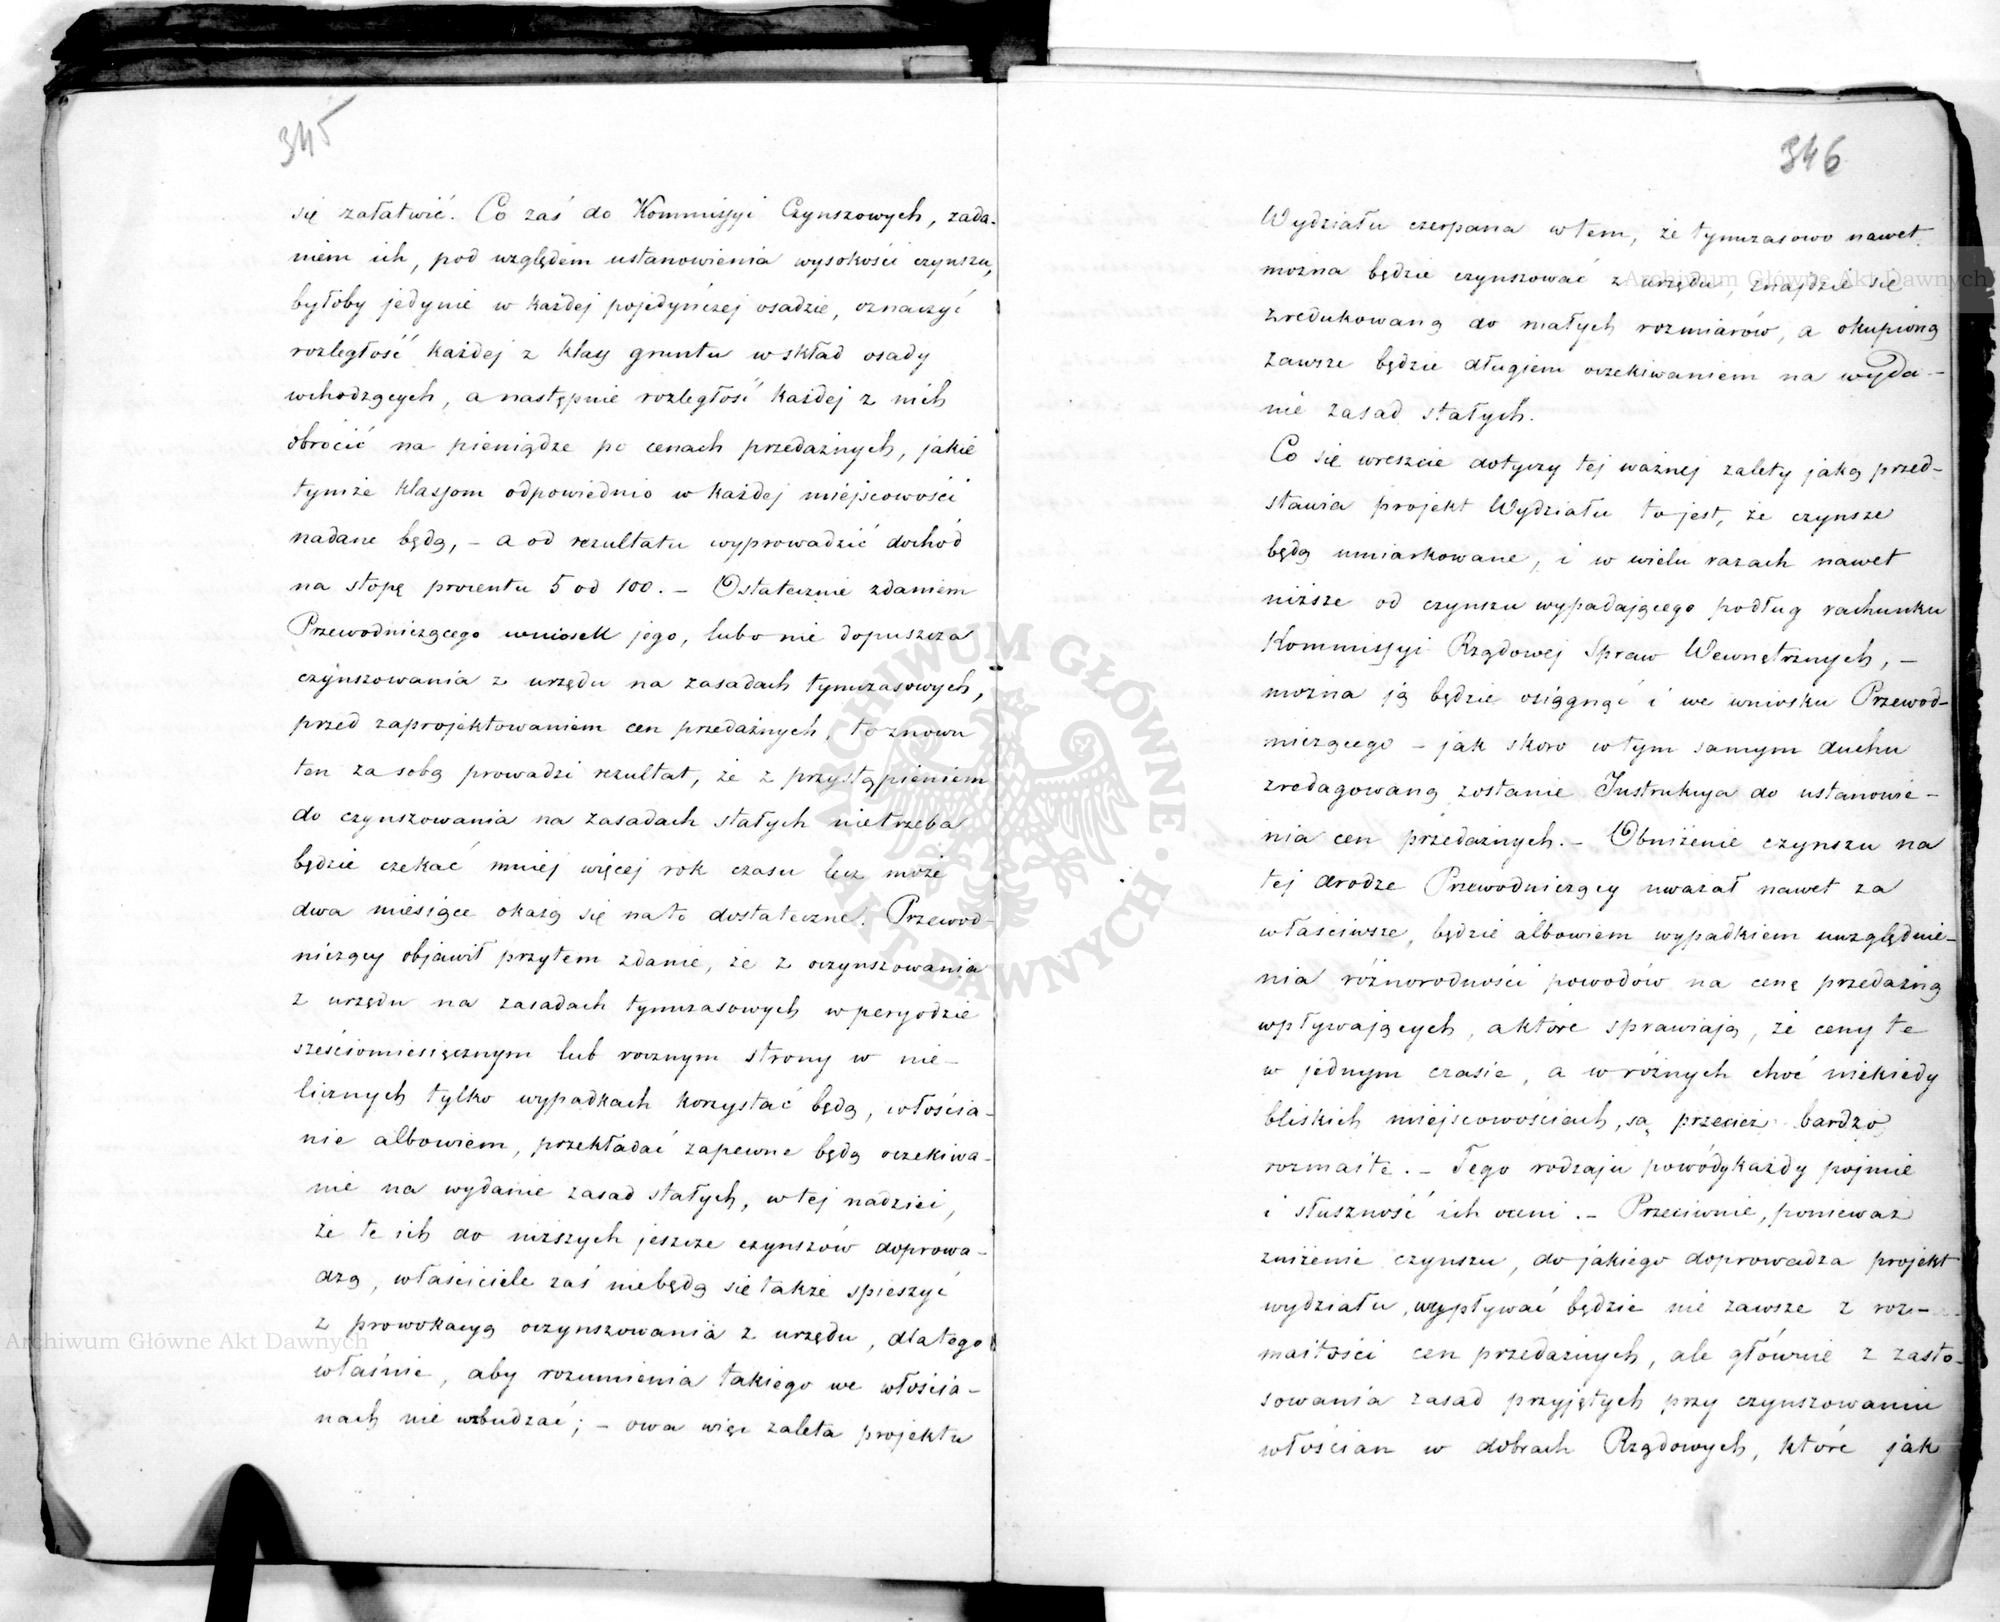 345
się załatwić. Co zaś do Kommissyi Czynszowych, zada-
niem ich, pod względem ustanowienia wysokości czynszu,
byłoby jedynie w każdej pojedyńczej osadzie, oznaczyć
rozległość każdej z klass gruntu w skład osady
wchodzących, a następnie rozległość każdej z nich
obrócić na pieniądze po cenach przedażnych, jakie
tymże klassom odpowiednio w każdej miejscowości
nadane będą, – a od rezultatu wyprowadzić dochód
na stopę procentu 5 od 100. – Ostatecznie zdaniem
Przewodniczącego wniosek jego, lubo nie dopuszcza
czynszowania z urzędu na zasadach tymczasowych,
przed zaprojektowaniem cen przedażnych, to znowu
ten za sobą prowadzi rezultat, że z przystąpieniem
do czynszowania na zasadach stałych nietrzeba
będzie czekać mniej więcej rok czasu lecz może
dwa miesiące okażą się na to dostateczne. Przewod-
niczący objawił przytem zdanie, że z oczynszowania
z urzędu na zasadach tymczasowych w peryodzie
sześciomiesięcznym lub rocznym strony w nie-
licznych tylko wypadkach korzystać będą, włościa-
nie albowiem, przekładać zapewne będą oczekiwa-
nie na wydanie zasad stałych, w tej nadziei,
że te ich do niższych jeszcze czynszów doprowa-
dzą, właściciele zaś niebędą się także spieszyć
z prowokacyą oczynszowania z urzędu, dlatego
właśnie, aby rozumienia takiego we włościa-
nach nie wzbudzać; – owa więc zaleta projektu
346
Wydziału czerpana w tem, że tymczasowo nawet
można będzie czynszować z urzędu, znajdzie się
zredukowaną do małych rozmiarów, a okupioną
zawsze będzie długiem oczekiwaniem na wyda-
nie zasad stałych.
Co się wreszcie dotyczy tej ważnej zalety jaką przed-
stawia projekt Wydziału to jest, że czynsze
będą umiarkowane, i w wielu razach nawet
niższe od czynszu wypadającego podług rachunku
Kommissyi Rządowej Spraw Wewnętrznych, –
można ją będzie osiągnąć i we wniosku Przewod-
niczącego – jak skoro w tym samym duchu
zredagowaną zostanie Instrukcya do ustanowie-
nia cen przedażnych. – Obniżenie czynszu na
tej drodze Przewodniczący uważał nawet za
właściwsze, będzie albowiem wypadkiem uwzględnie-
nia różnorodności powodów na cenę przedażną
wpływających, a które sprawiają, że ceny te
w jednym czasie, a w różnych choć niekiedy
bliskich miejscowościach, są przecież bardzo
rozmaite. – Tego rodzaju powódy każdy pojmie
i słuszność ich oceni. – Przeciwnie, ponieważ
zniżenie czynszu, do jakiego doprowadza projekt
wydziału, wypływać będzie nie zawsze z roz-
maitości cen przedażnych, ale głównie z zasto-
sowania zasad przyjętych przy czynszowaniu
włościan w dobrach Rządowych, które jak
Archiwum Główne Akt Dawnych
Archiwum Główne Akt Dawnych
ARCHIWUM GŁÓWNE · AKT DAWNYCH ·